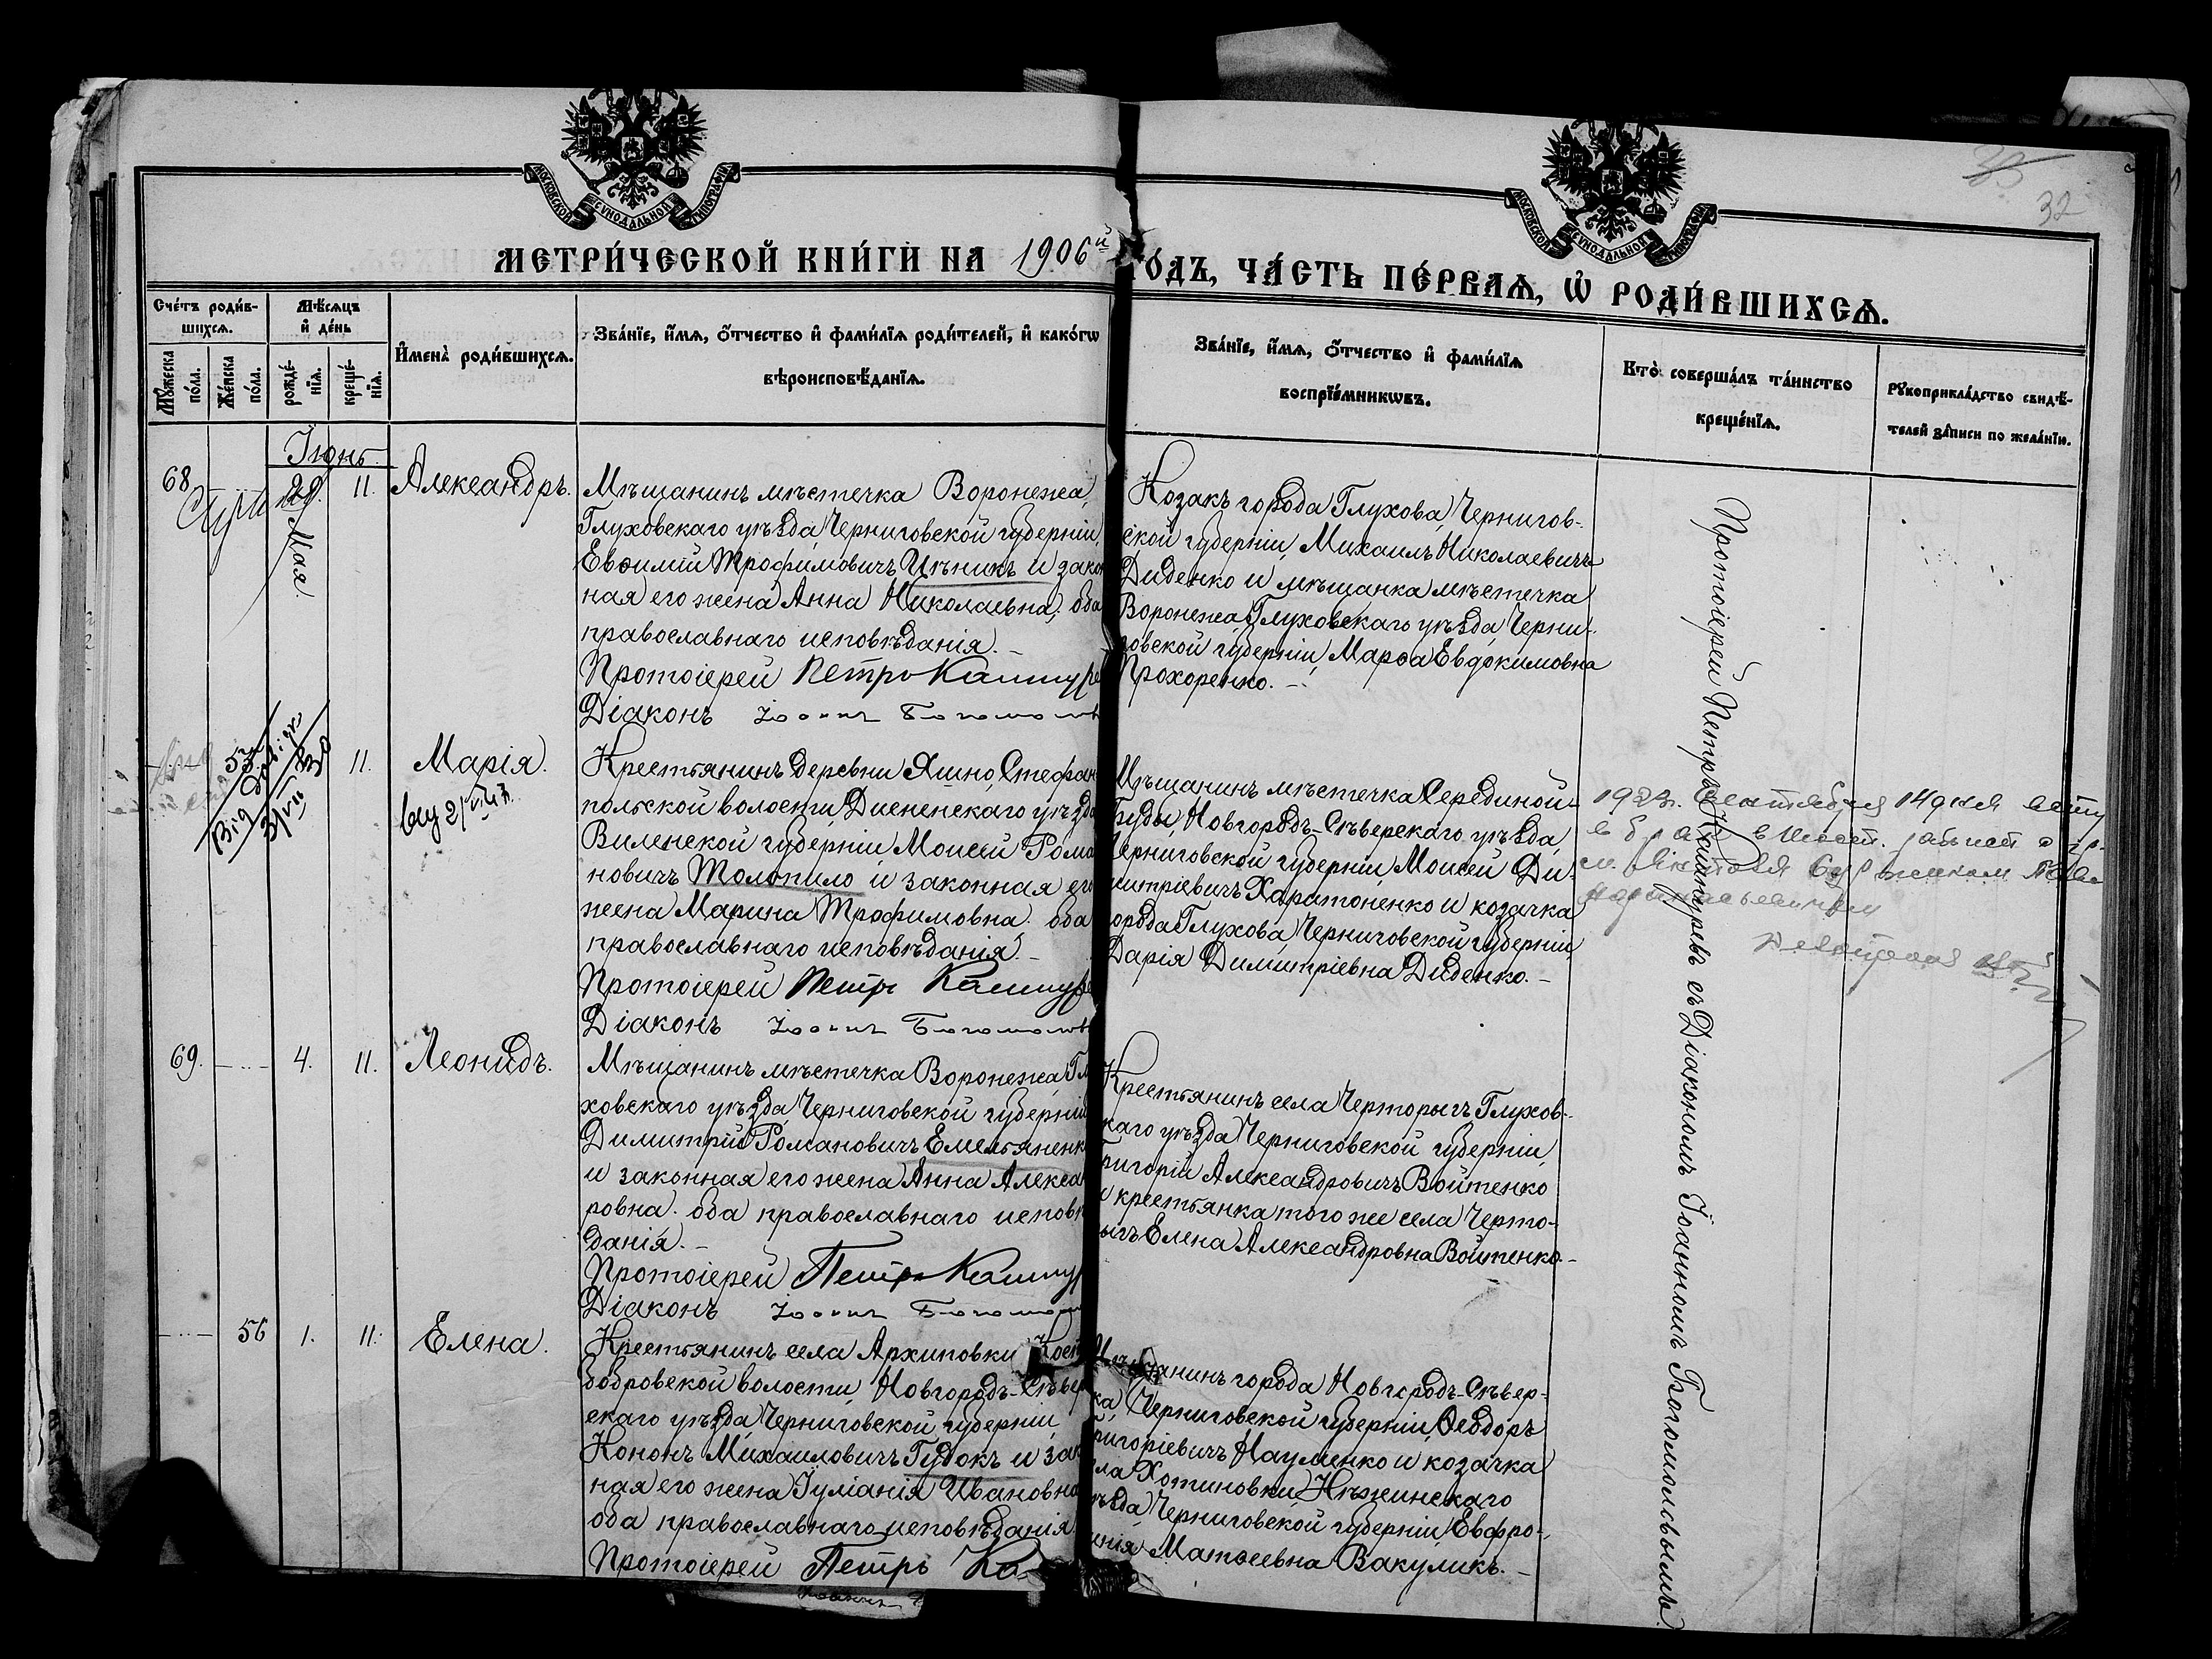 МОСКОВСКОЙ СѴНОДАЛЬНОЙ ТИПОГРАФІИ
МОСКОВСКОЙ СѴНОДАЛЬНОЙ ТИПОГРАФІИ
35
32
МЕТРИ́ЧЕСКОЙ КНИ́ГИ НА 1906й
ГО́ДЪ, ЧА́СТЬ ПЕ́РВАѦ, Ѡ҆ РОДИ́ВШИХСѦ.
Сче́тъ роди́в-
шихсѧ.
Мѣ́сѧцъ
и҆ де́нь
Мꙋ́жеска
по́ла.
Же́нска
по́ла.
рожде́-
нїѧ.
креще́-
нїѧ.
И҆мена̀ роди́вшихсѧ.
Зва́нїе, и҆́мѧ, ѻ҆́тчество и҆ фами́лїѧ роди́телей, и҆ како́гѡ
вѣроисповѣ́данїѧ.
Зва́нїе, и҆́мѧ, ѻ҆́тчество и҆ фами́лїѧ
воспрїе́мникѡвъ.
Кто̀ соверша́лъ та́инство
креще́нїѧ.
Рꙋкоприкла́дство свидѣ́-
телей за́писи по жела́нїи.
Іюнь.
68
29.
Мая
11.
Александръ.
Мѣщанинъ мѣстечка Воронежа,
Глуховскаго уѣзда, Черниговской губерніи,
Евѳимій Трофимовичъ Цѣникъ и закон
ная его жена Анна Николаевна, оба
православнаго исповѣданія. –
Протоіерей Петръ Кашпуре
Діаконъ Іоаннъ Богомолов
Козакъ города Глухова, Чернигов-
ской губерніи, Михаилъ Николаевичъ
Диденко и мѣщанка мѣстечка
Воронежа, Глуховскаго уѣзда, Черни-
говской губерніи, Марѳа Евдокимовна
Прохоренко. –
Протоіерей Петръ Кашпуревъ съ Діакономъ Іоанномъ Богомоловымъ.
11.
Марія.
Крестьянинъ деревни Яшно, Стефан
польской волости, Дисненскаго уѣзда
Виленской губерніи, Моисей Рома
новичъ Толопило и законная его
жена Марина Трофимовна, оба
православнаго исповѣданія. –
Протоіерей Петръ Кашпуре
Діаконъ Іоаннъ Богомолов
Мѣщанинъ мѣстечка Серединой-
Буды, Новгородъ-Сѣверскаго уѣзда,
Черниговской губерніи, Моисей Ди-
митріевичъ Харитоненко и козачка
города Глухова, Черниговской губерніи,
Дарія Димитріевна Диденко. –
69.
4.
11.
Леонидъ.
Мѣщанинъ мѣстечка Воронежа, Гл
ховскаго уѣзда, Черниговской губерніи
Димитрій Романовичъ Емельяненк
и законная его жена Анна Алекса
ровна, оба православнаго исповѣ
данія. –
Протоіерей Петръ Кашпу
Діаконъ Іоаннъ Богомолов
Крестьянинъ села Черторыгъ, Глухов-
скаго уѣзда, Черниговской губерніи,
Григорій Александровичъ Войтенко
и крестьянка того же села Черто-
рыгъ Елена Александровна Войтенко. –
56
1.
11.
Елена.
Крестьянинъ села Архиповки, Кост
бобровской волости, Новгородъ-Сѣвер
скаго уѣзда, Черниговской губерніи,
Кононъ Михаиловичъ Гудокъ и зак
ная его жена Іуліанія Ивановна
оба православнаго исповѣданія
Протоіерей Петръ Ка
Мѣщанинъ города Новгородъ-Сѣвер-
ска, Черниговской губерніи, Ѳеодоръ
Григоріевичъ Науменко и козачка
села Хотиновки, Нѣжинскаго
уѣзда, Черниговской губерніи, Евфро-
синія Матѳеевна Вакуликъ. –